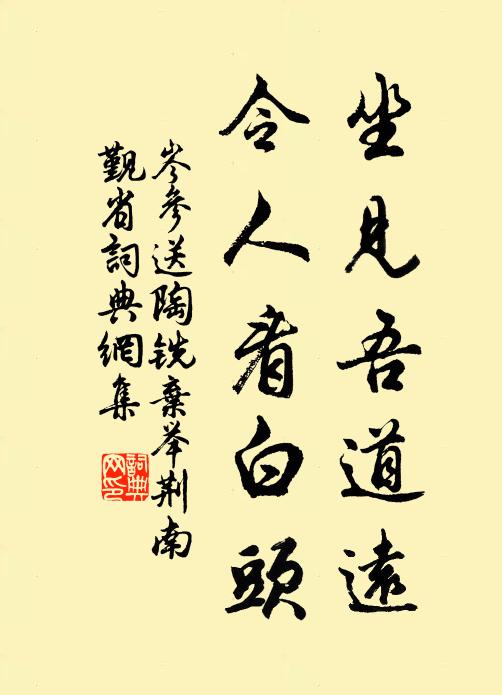 坐見吾道遠
令人看白頭
岑參送陶銑棄舉荆南
覲省詞典網集
詞典网印